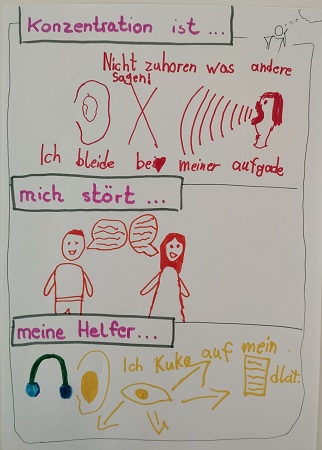 Konzentration ist ...
Nicht zuhoren was andere
sagen!
Ich bleide bei meiner aufgade
mich stört ...
meine Helfer...
Ich Kuke auf mein
dlat.